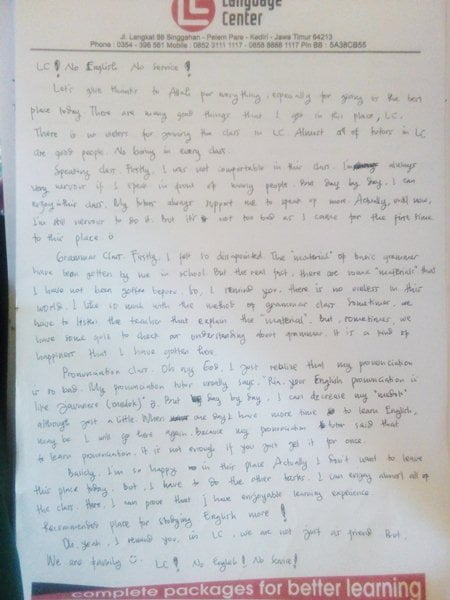 Language
LC Center
Jl. Langkat 88 Singgahan - Pelem Pare - Kediri - Jawa Timur 64213
Phone : 0354 - 396 561 Mobile : 0852 3111 1117 - 0858 8888 1117 Pin BB : 5A38CB55
LC ! No English No Service !
Let's give thanks to Allah for everything, especially for giving us the best
place today. There are many good things that I got in this place, LC.
There is no useless for joining the class in LC. Almost all of tutors in LC
are good people. No boring in every class.
Speaking class. Firstly, I was not comfortable in this class. I'm always
very nervous if I speak in front of many people. But day by day, I can
enjoy this class. My tutors always support me to speak up more. Actually, until now,
I'm still nervous to do it. But it's not too bad as I came for the first time
to this place.
Grammar Class. Firstly, I felt so disappointed. The "material" of basic grammar
have been gotten by me in school. But the real fact, there are some "materials" that
I have not been gotten before. So, I remind you, there is no useless in this
world. I like so much with the method of grammar class. Sometimes, we
have to listen the teacher that explain the "material". But, sometimes, we
have some quiz to check our understanding about grammar. It is a kind of
happiness that I have gotten here.
Pronunciation class. Oh my God, I just realize that my pronunciation
is so bad. My pronunciation tutor usually says, "Rin, your English pronunciation is
like Javanese (medok)". But day by day, I can decrease my "medok"
although just a little. When one day I have more time to learn English,
may be I will go here again. Because my pronunciation tutor said that
to learn pronunciation. It is not enough if you just get it for once.
Basicly, I'm so happy in this place. Actually I don't want to leave
this place today. But, I have to do the other tasks. I can enjoy almost all of
the class. Here, I can prove that I have enjoyable learning experience.
Recommended place for studying English more !
Oh yeah, I remind you, in LC, we are not just as friend. But,
We are family. LC ! No English ! No Service !
complete packages for better learning